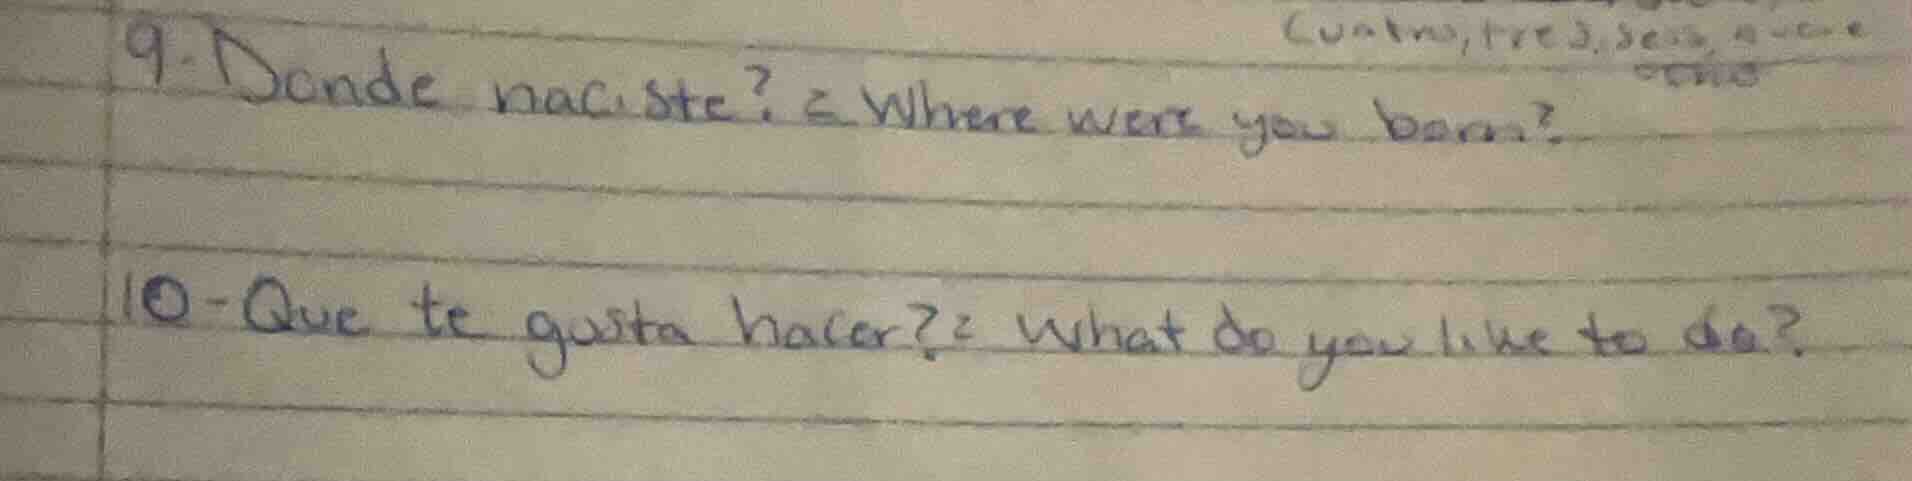 Cuatro, tres, seis, nueve
ocho
9. Donde naciste? = Where were you born?
10 - Que te gusta hacer? = What do you like to do?